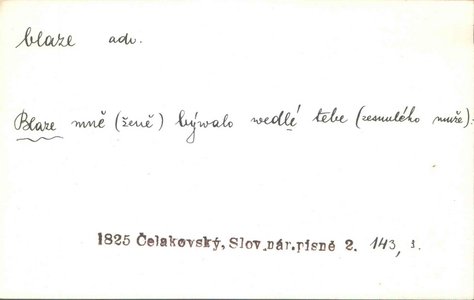 blaze adv.
Blaze mně (ženě) bývalo wedlé tebe (zesnulého muže).
1825 Čelakovský, Slov.nár.písně 2. 143, 3.